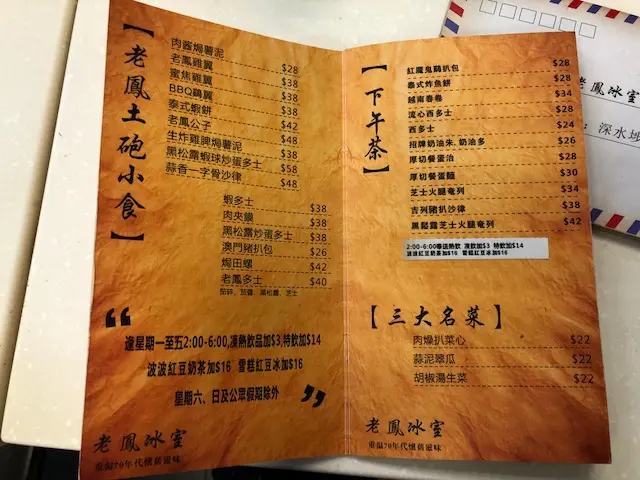 【老鳳土砲小食】
肉醬焗薯泥 $28
老鳳雞翼 $28
蜜焦雞翼 $38
BBQ雞翼 $38
泰式蝦餅 $38
老鳳公子 $42
生炸雞脾焗薯泥 $48
黑松露蝦球炒蛋多士 $58
蒜香一字骨沙律 $48
蝦多士 $38
肉夾饃 $38
黑松露炒蛋多士 $38
澳門豬扒包 $26
焗田螺 $42
老鳳多士 $40
“
逢星期一至五2:00-6:00,凍熱飲品加$3,特飲加$14
波波紅豆奶茶加$16 雪糕紅豆冰加$16
星期六、日及公眾假期除外
”
老鳳冰室
重溫70年代懷舊滋味
【下午茶】
紅魔鬼雞扒包 $28
泰式炸魚餅 $28
越南春卷 $34
流心西多士 $28
西多士 $24
招牌奶油朱. 奶油多 $26
厚切餐蛋治 $28
厚切餐蛋麵 $30
芝士火腿奄列 $34
吉列豬扒沙律 $38
黑鬆露芝士火腿奄列 $42
2:00-6:00奉送熱飲 凍飲加$3 特飲加$14
波波紅豆奶茶加$16 雪糕紅豆冰加$16
【三大名菜】
肉燥扒菜心 $22
蒜泥翠瓜 $22
胡椒湯生菜 $22
老鳳冰室
重溫70年代懷舊滋味
老鳳冰室
: 深水埗